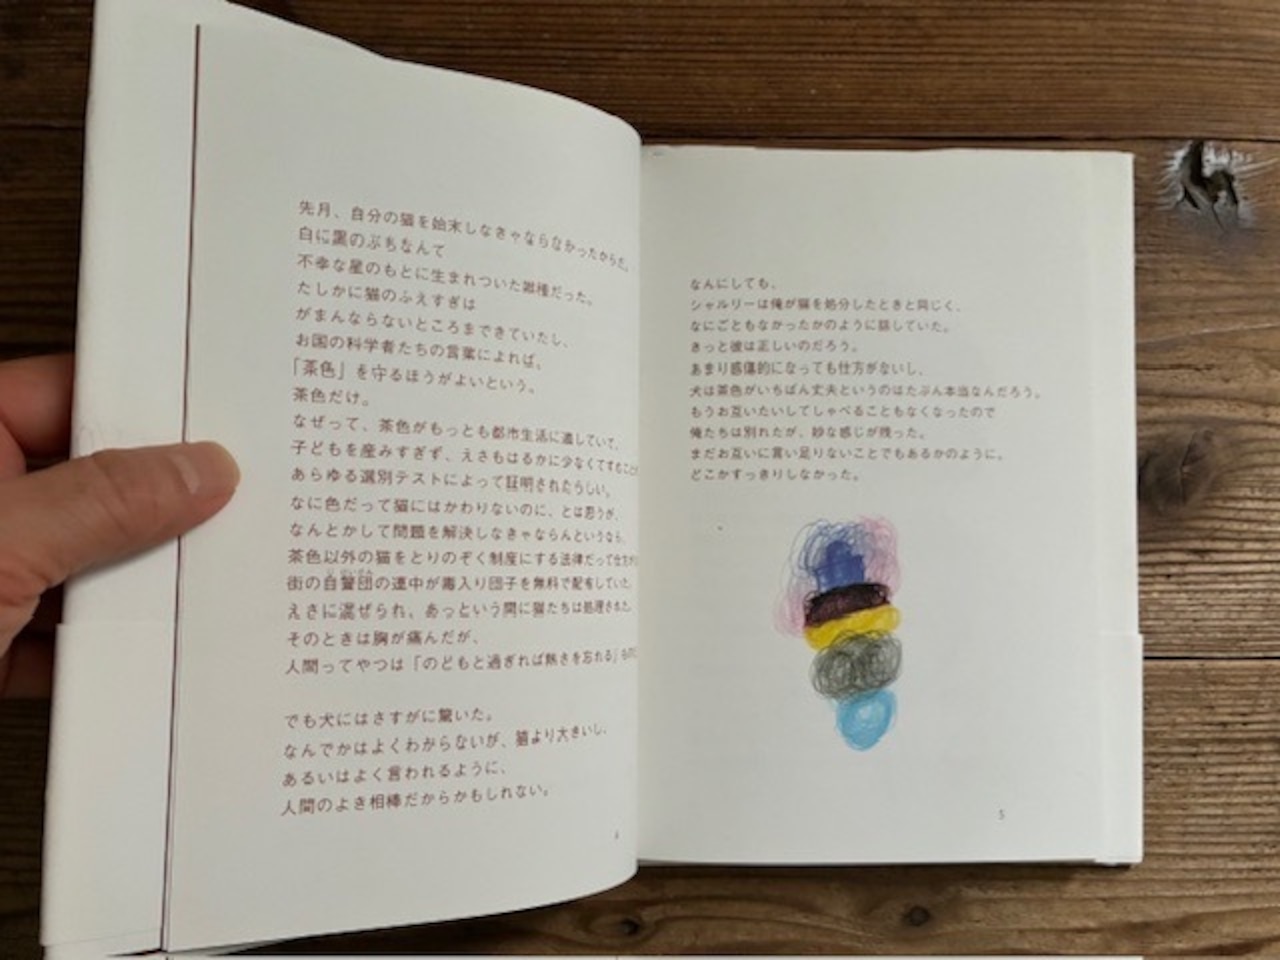 先月、自分の猫を始末しなきゃならなかったからだ。
白に黒のぶちなんて
不幸な星のもとに生まれついた雑種だった。
たしかに猫のふえすぎは
がまんならないところまできていたし、
お国の科学者たちの言葉によれば、
「茶色」を守るほうがよいという。
茶色だけ。
なぜって、茶色がもっとも都市生活に適していて、
子どもを産みすぎず、えさもはるかに少なくてすむこと
あらゆる選別テストによって証明されたらしい。
なに色だって猫にはかわりないのに、とは思うが、
なんとかして問題を解決しなきゃならんというなら、
茶色以外の猫をとりのぞく制度にする法律だって仕方が
街の自警団の連中が毒入り団子を無料で配布していた。
えさに混ぜられ、あっという間に猫たちは処理された。
そのときは胸が痛んだが、
人間ってやつは「のどもと過ぎれば熱さを忘れる」
でも犬にはさすがに驚いた。
なんでかはよくわからないが、猫より大きいし、
あるいはよく言われるように、
人間のよき相棒だからかもしれない。
4
なんにしても、
シャルリーは俺が猫を処分したときと同じく、
なにごともなかったかのように話していた。
きっと彼は正しいのだろう。
あまり感傷的になっても仕方がないし、
犬は茶色がいちばん丈夫というのはたぶん本当なんだろう。
もうお互いたいしてしゃべることもなくなったので
俺たちは別れたが、妙な感じが残った。
まだお互いに言い足りないことでもあるかのように。
どこかすっきりしなかった。
5